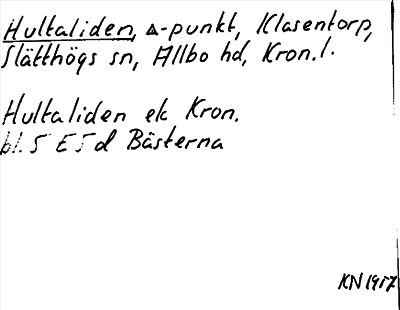 Hultaliden, ▵-punkt, Klasentorp,
Slätthögs sn, Allbo hd, Kron. l.
Hultaliden ek Kron.
bl. 5 E 5 d Bästerna
KN 1957